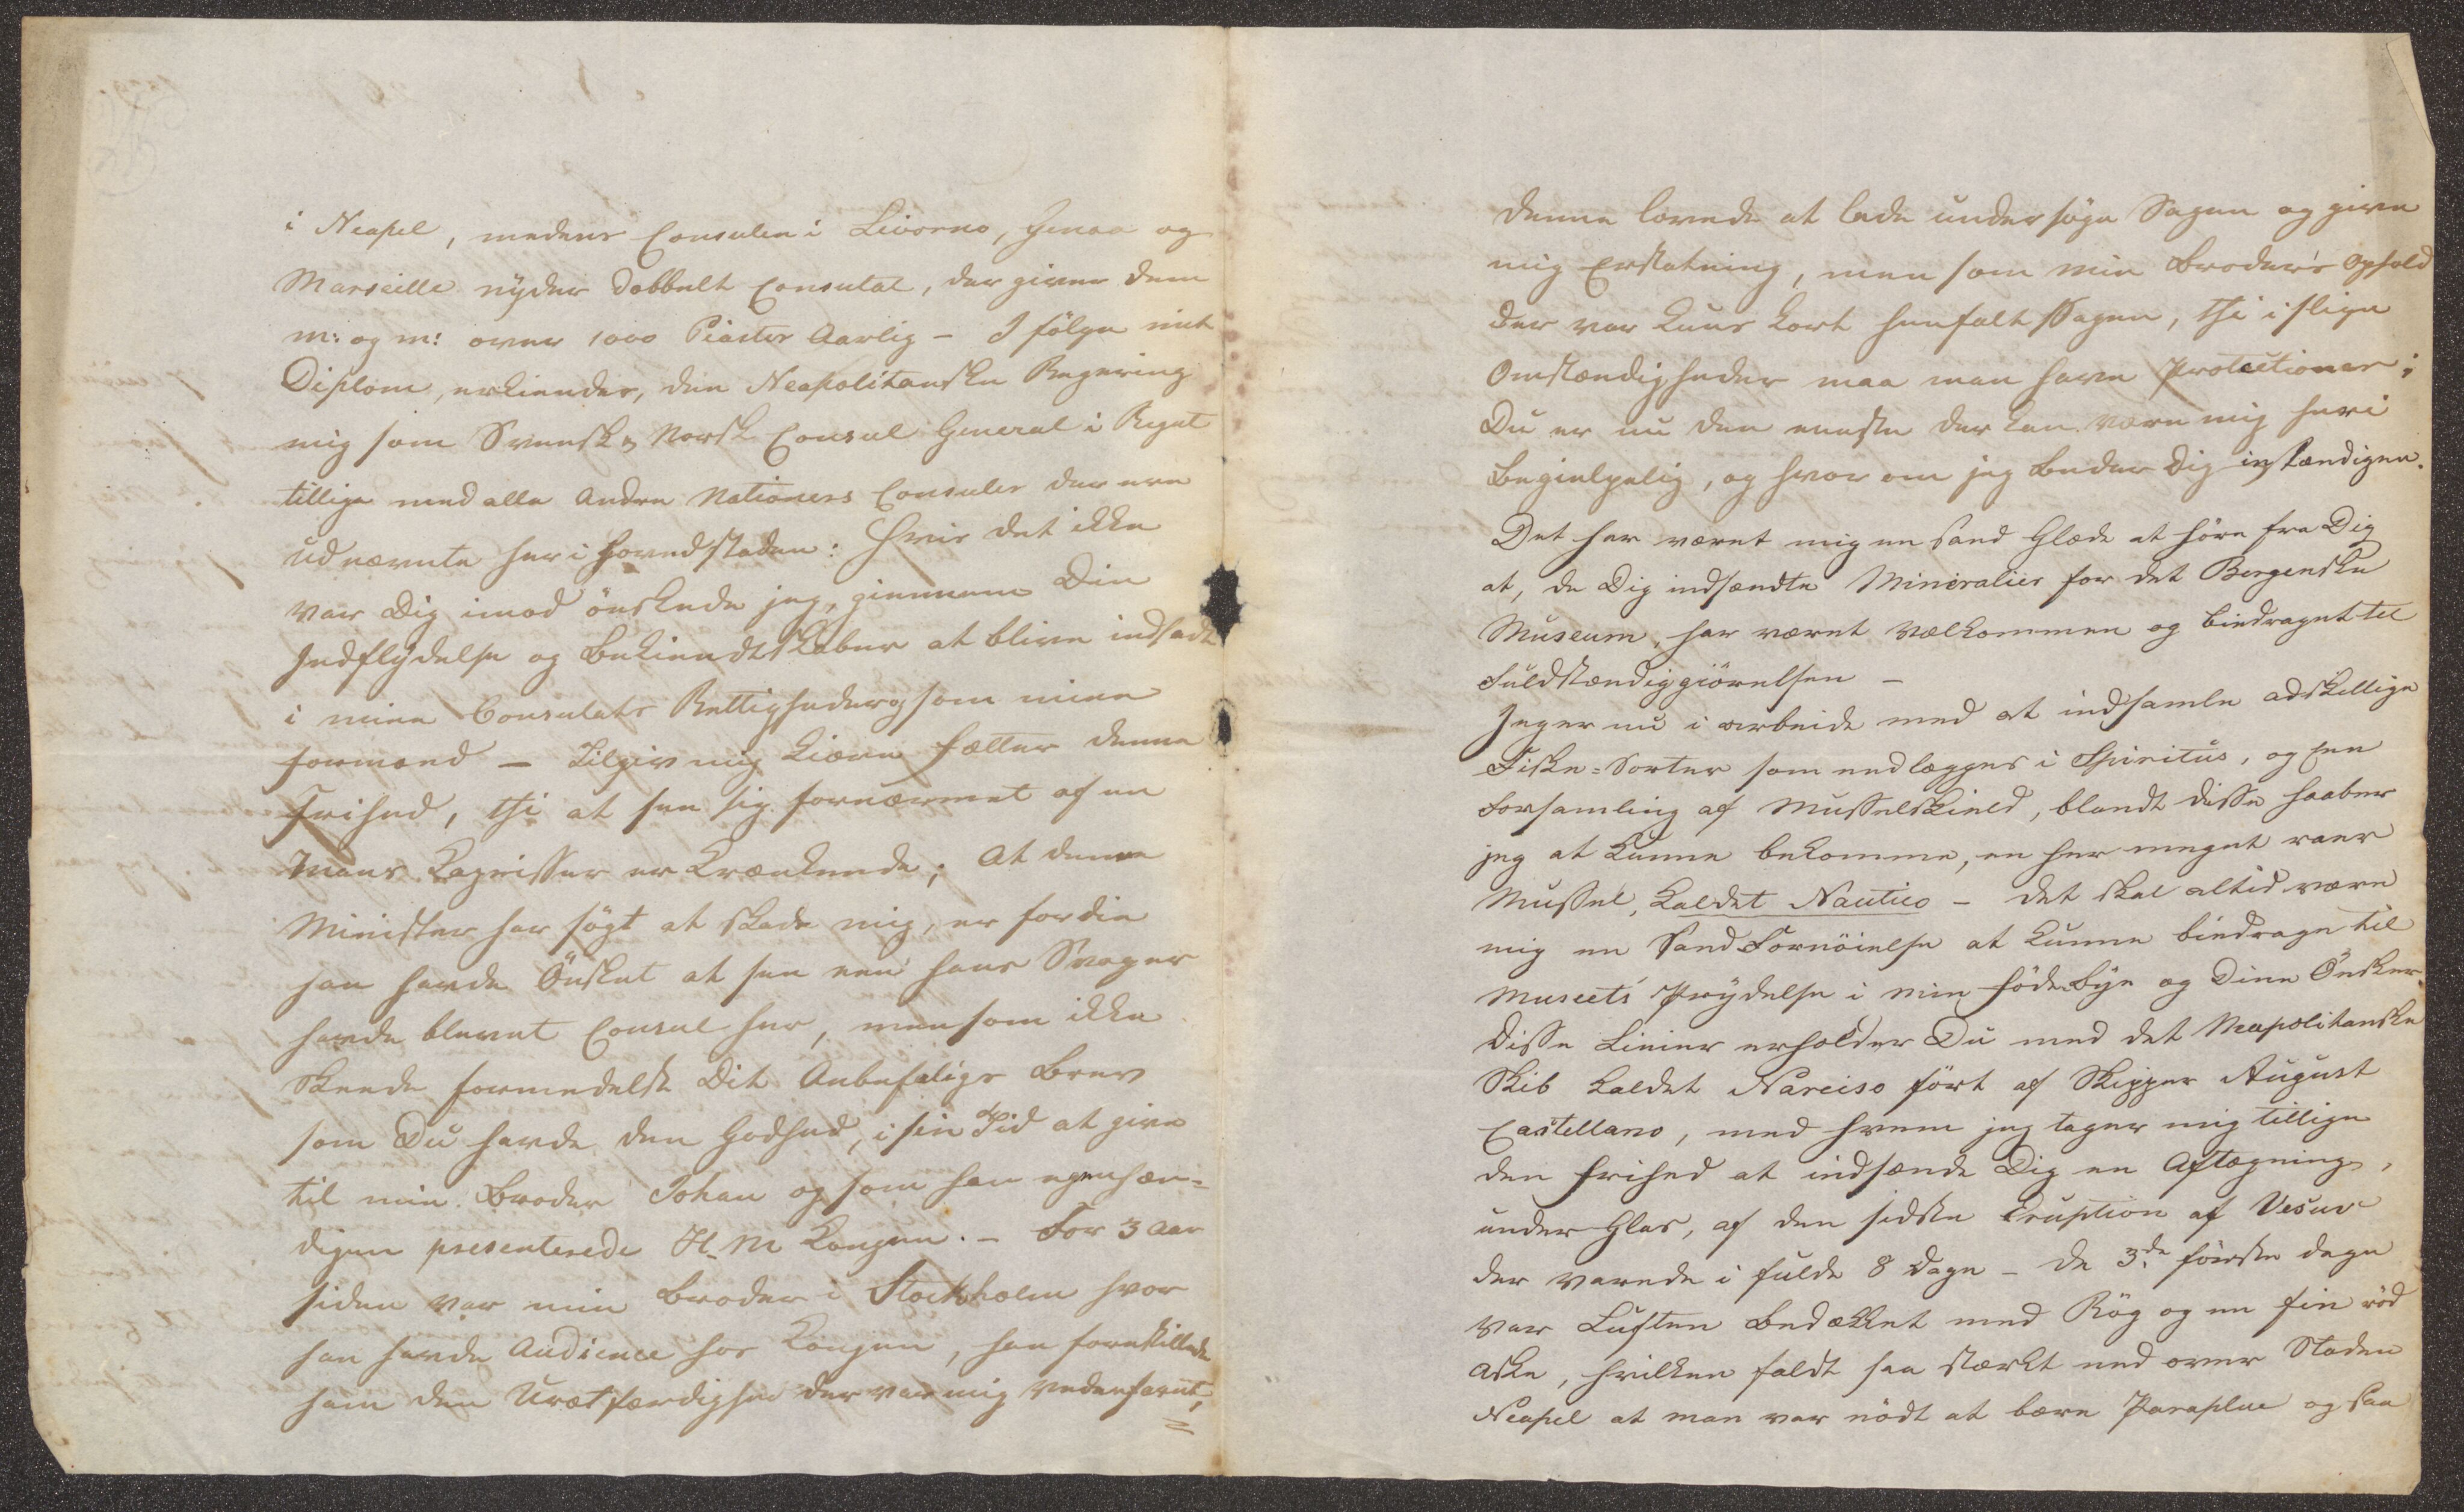 i Neapel, medens Consulen i Livorno, Genoa og
Marseille nÿder dobbelt Consulat, der giver dem
m: og m: over 1000 Piaster Aarlig – I fölge mit
Diplom, erkiender, den Neapolitanske Regiering
mig som Svensk & Norsk Consul General i Reg
tillige med alle Andre Nationers Consuler der ere
udnævnte her i Hovedstaden: Hvis det ikke
var Dig imod önskede jeg, giennem Din
Indflÿdelse og Bekiendtskaber at blive indsadt
i mine Consulats Rettigheder som mine
formænd – Tilgiv mig kiære Fætter denne
Frihed, thi at see sig fornærmet af en
Mans Kaprisser er krænkende; At denne
Minister har sögt at skade mig, er fordie
han havde Önsket at see een hans Svoger
havde blevet Consul her, men som ikke
skeede formedelst Dit Anbefalings Brev
som Du havde den Godhed, i sin Tid at give
til min Broder Johan og som han egenhæn=
digen presenterede H. M Kongen. – For 3 Aar
siden var min Broder i Stockholm hvor
han havde Audience hos Kongen, han forestillede
ham den Uretfærdighed der var mig vederfaret,
denne lovede at lade undersöge Sagen og give
mig Erstatning, men som min Broder's Ophold
der var kuns kort henfalt Sagen, thi i slige
Omstændigheder maa man have Protectioner;
Du er nu den eneste der kan være mig heri
Behielpelig, og hvor om jeg beder Dig instændigen.
Det har været mig en sand Glæde at höre fra Dig
at, de Dig indsændte Mineralier for det Bergenske
Museum, har været velkommen og biedraget til
Fuldstændiggiörelsen –
Jeg er nu i arbeide med at indsamle adskillige
Fiske=Sorter som nedlægges i Spiritus, og een
Forsamling af Musselskield, blandt disse haaber
jeg at kunne bekomme, en her meget raer
Mussel, kaldet Nautico – det skal altid være
mig en Sand Fornöielse at kunne biedrage til
Museets Prÿdelse i min födeBÿe og Dine Önsker.
Disse Linier erholder Du med det Neapolitanske
Skib kaldet Narciso fört af Skipper August
Castellano, med hvem jeg tager mig tillige
den Frihed at indsænde Dig en Aftegning,
under Glas, af den sidste Eruption af Vesuv
der varede i fulde 8 Dage – De 3de förste dage
var Luften bedækket med Rög og en fin röd
Aske, hvilken faldt saa stærkt ned over Staden
Neapel at man var nödt at bære Paraplue og saa